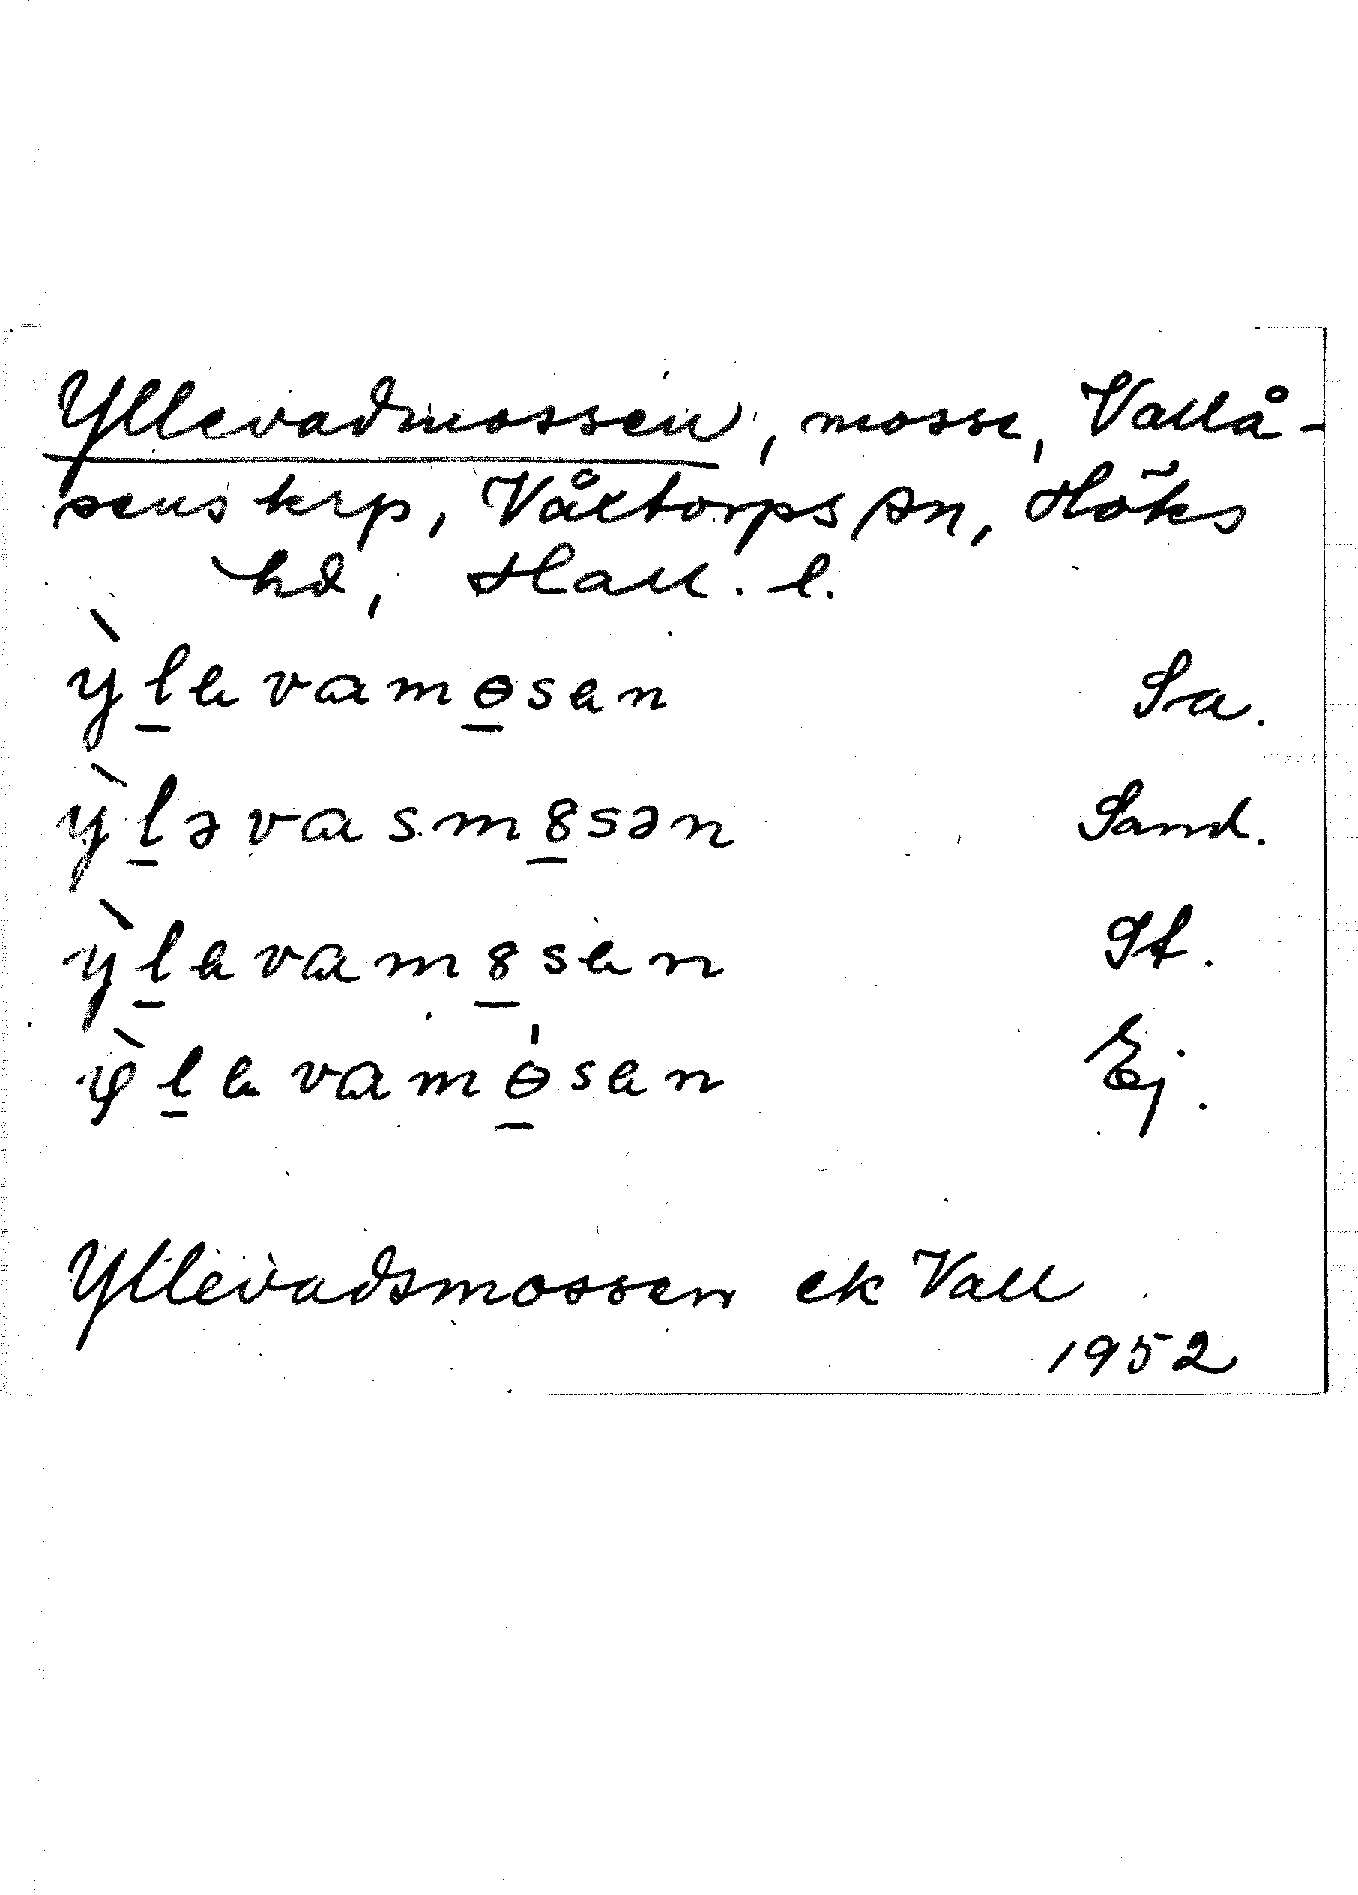 Yllevadmossen, mosse, Vallå-
sens krp, Våxtorps sn, Höks
hd, Hall. l.
ỳlevamɵsen Sa.
ỳləvasm8sən Sand.
ỳlevam8sen St.
levamɵ́sen Ej.
Yllevadsmossen ek Vall
1952